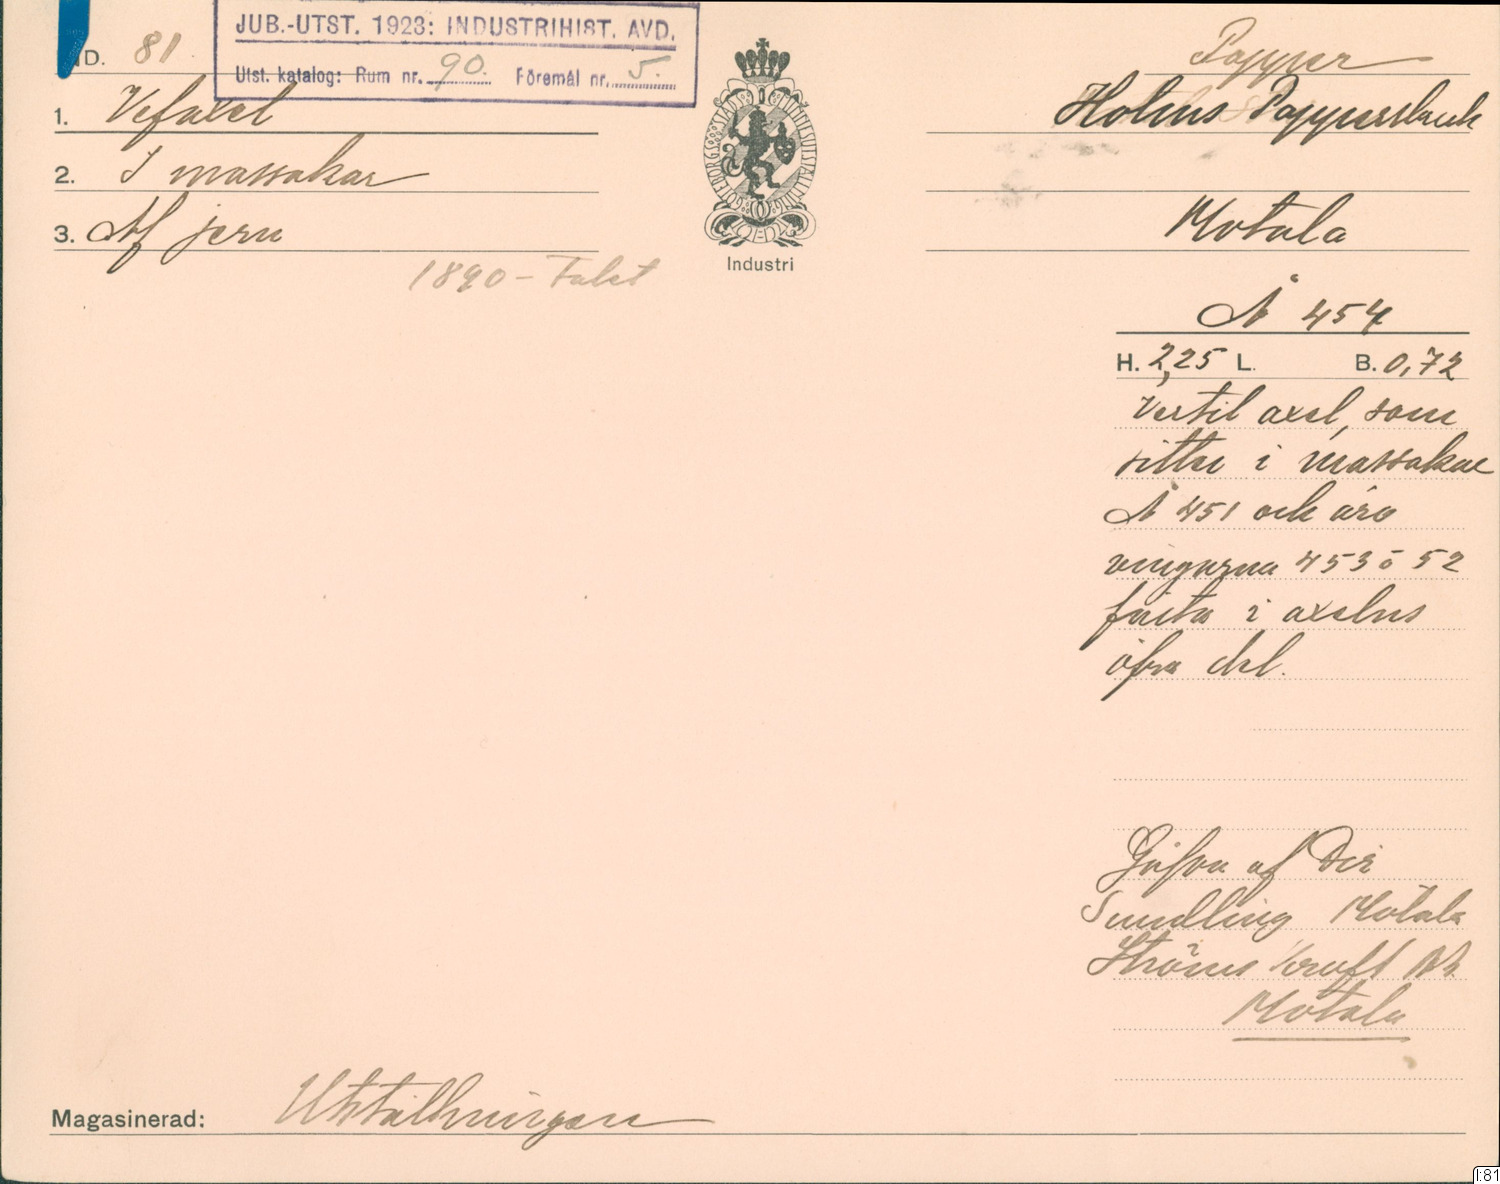 JUB.-UTST. 1923: INDUSTRIHIST. AVD.
Utst. katalog: Rum nr. 90. Föremål nr. 5.
ND. 81
Papper
1. Vefaxel
Holms Pappersbruk
2. I massakar
3. Af jern
Motala
GÖTEBORGS STADS JUBILEUMSUTSTÄLLNING
Industri
1890-Talet
Å 454
H. 2,25 L. B. 0,72
Vertil axel, som
sitter i massakar
Å 451 och äro
vingarna 453 o 52
fästa i axelns
öfra del.
Gåfva af Dir
Sundling Motala
Ströms Kraft AB.
Motala
Magasinerad: Utställningen
I:81